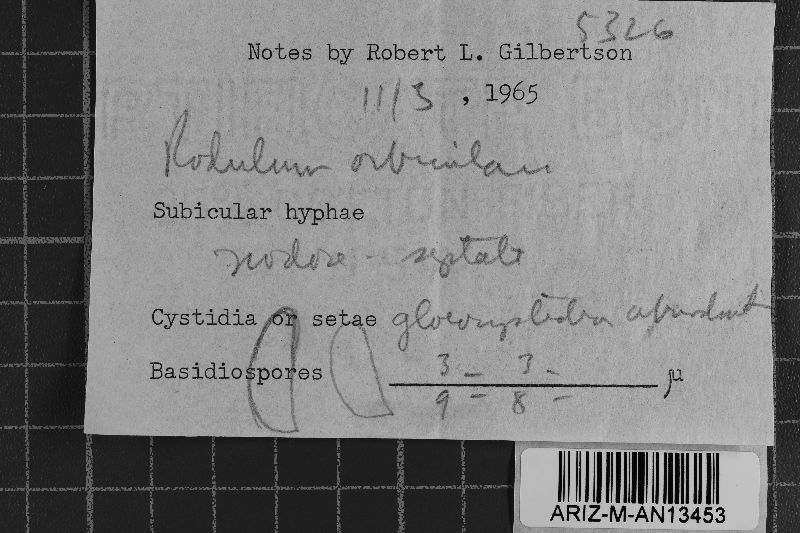 5326
Notes by Robert L. Gilbertson
11/3, 1965
Radulum orbiculare
Subicular hyphae
nodose - septate
Cystidia or setae gloeocystidia abundant
Basidiospores 3 - 3 - μ
9 - 8 -
ARIZ-M-AN13453